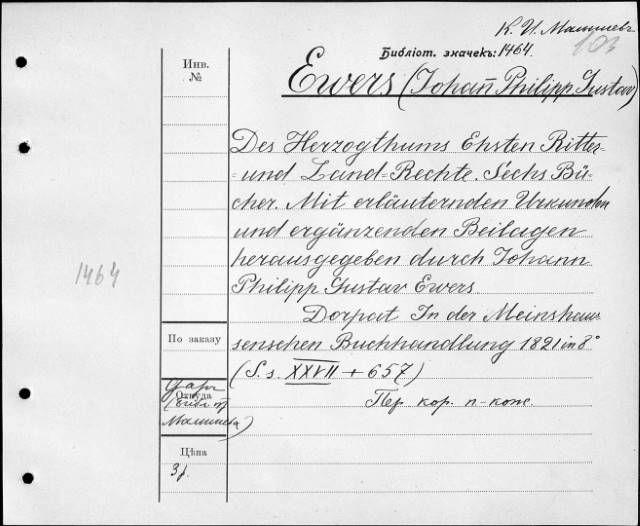 К. И. Малышевъ
103
Библіот. значекъ: 1464.
Инв. №
Ewers (Johann Philipp Gustav)
Des Herzogthums Ehsten Ritter-
-und Land-Rechte. Sechs Bü-
cher. Mit erläuternden Urkunden
und ergänzenden Beilagen
herausgegeben durch Johann
Philipp Gustav Ewers
1464
Dorpat In der Meinshau-
По заказу
senschen Buchhandlung 1821 in 8°
(S.s. XXVII + 657)
Откуда
Даръ
(библ.
Малышева)
Пер. кор. п-кож.
Цѣна
3 р.